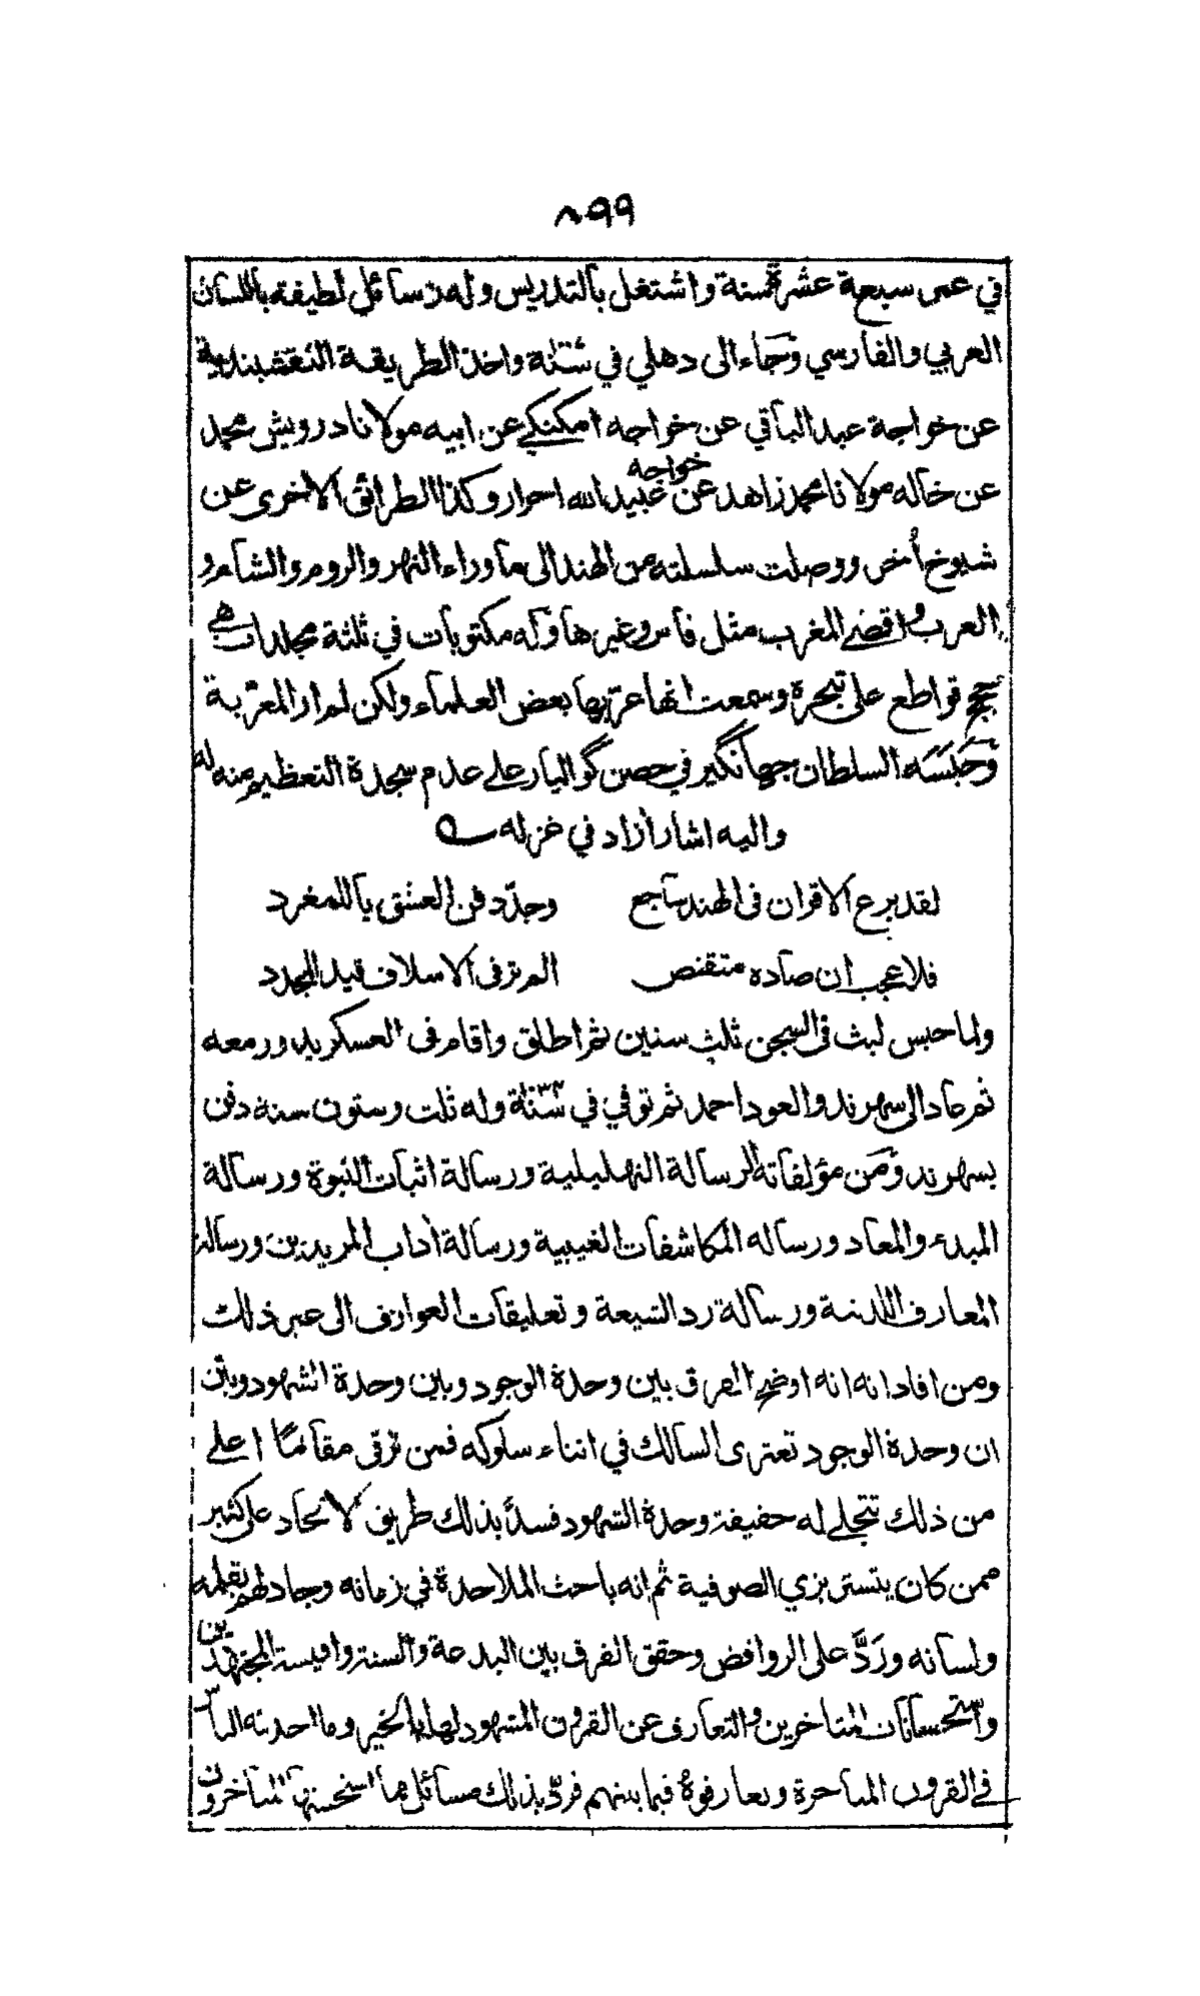 ٨٩٩
في عمر سبعة عشرة سنة واشتغل بالتدريس وله رسائل لطيفة باللسان
العربي والفارسي وجاء الى دهلي في سنة واخذ الطريقة النقشبندية
عن خواجة عبد الباقي عن خواجه امكنكي عن ابيه مولانا درويش محمد
عن خاله مولانا محمد زاهد عن خواجه عبيد الله احرار وكذا الطرائق الاخرى عن
شيوخ أخر ووصلت سلسلته من الهند الى ما وراء النهر والروم والشام و
العرب واقصى المغرب مثل فاس وغيرها وله مكتوبات في ثلثة مجلدات هي
حجج قواطع على تبحره وسمعت انها عربها بعض العلماء ولكن لم ار المعربة
وحبسه السلطان جهانگير في حصن گواليار على عدم سجدة التعظيم منه له
واليه اشار أزاد في غزله
لقد برع الاقران فى الهند ساجع وجدّد فن العشق يا للمغرد
فلا عجب ان صاده متقنص الم تر فى الاسلاف قيد المجدد
ولما حبس لبث فى السجن ثلث سنين ثم اطلق واقام فى العسكر يدور معه
ثم عاد الى سهرند والعود احمد ثم توفي في سنة وله ثلث وستون سنة دفن
بسهرند ومن مؤلفاته الرسالة التهليلية ورسالة اثبات النبوة ورسالة
المبدء والمعاد ورساله المكاشفات الغيبية ورسالة أداب المريدين ورسالة
المعارف اللدنية ورسالة رد الشيعة وتعليقات العوارف الى غير ذلك
ومن افاداته انه اوضح الفرق بين وحدة الوجود وبين وحدة الشهود وبيّن
ان وحدة الوجود تعترى السالك في اثناء سلوكه فمن ترقى مقامًا اعلى
من ذلك تتجلى له حقيقة وحدة الشهود فسدّ بذلك طريق الالحاد على كثير
ممن كان يتستر بزي الصوفية ثم إنه باحث الملاحدة في زمانه وجادلهم بقلمه
ولسانه وردَّ على الروافض وحقق الفرق بين البدعة والسنة واقيسة المجتهدين
واستحسانات المتاخرين والتعارف عن القرون المشهود لها بالخير وما احدثه الناس
في القرون المتاخرة وتعارفوه فيما بينهم فردّ بذلك مسائل مما استحسنها المتاخرون